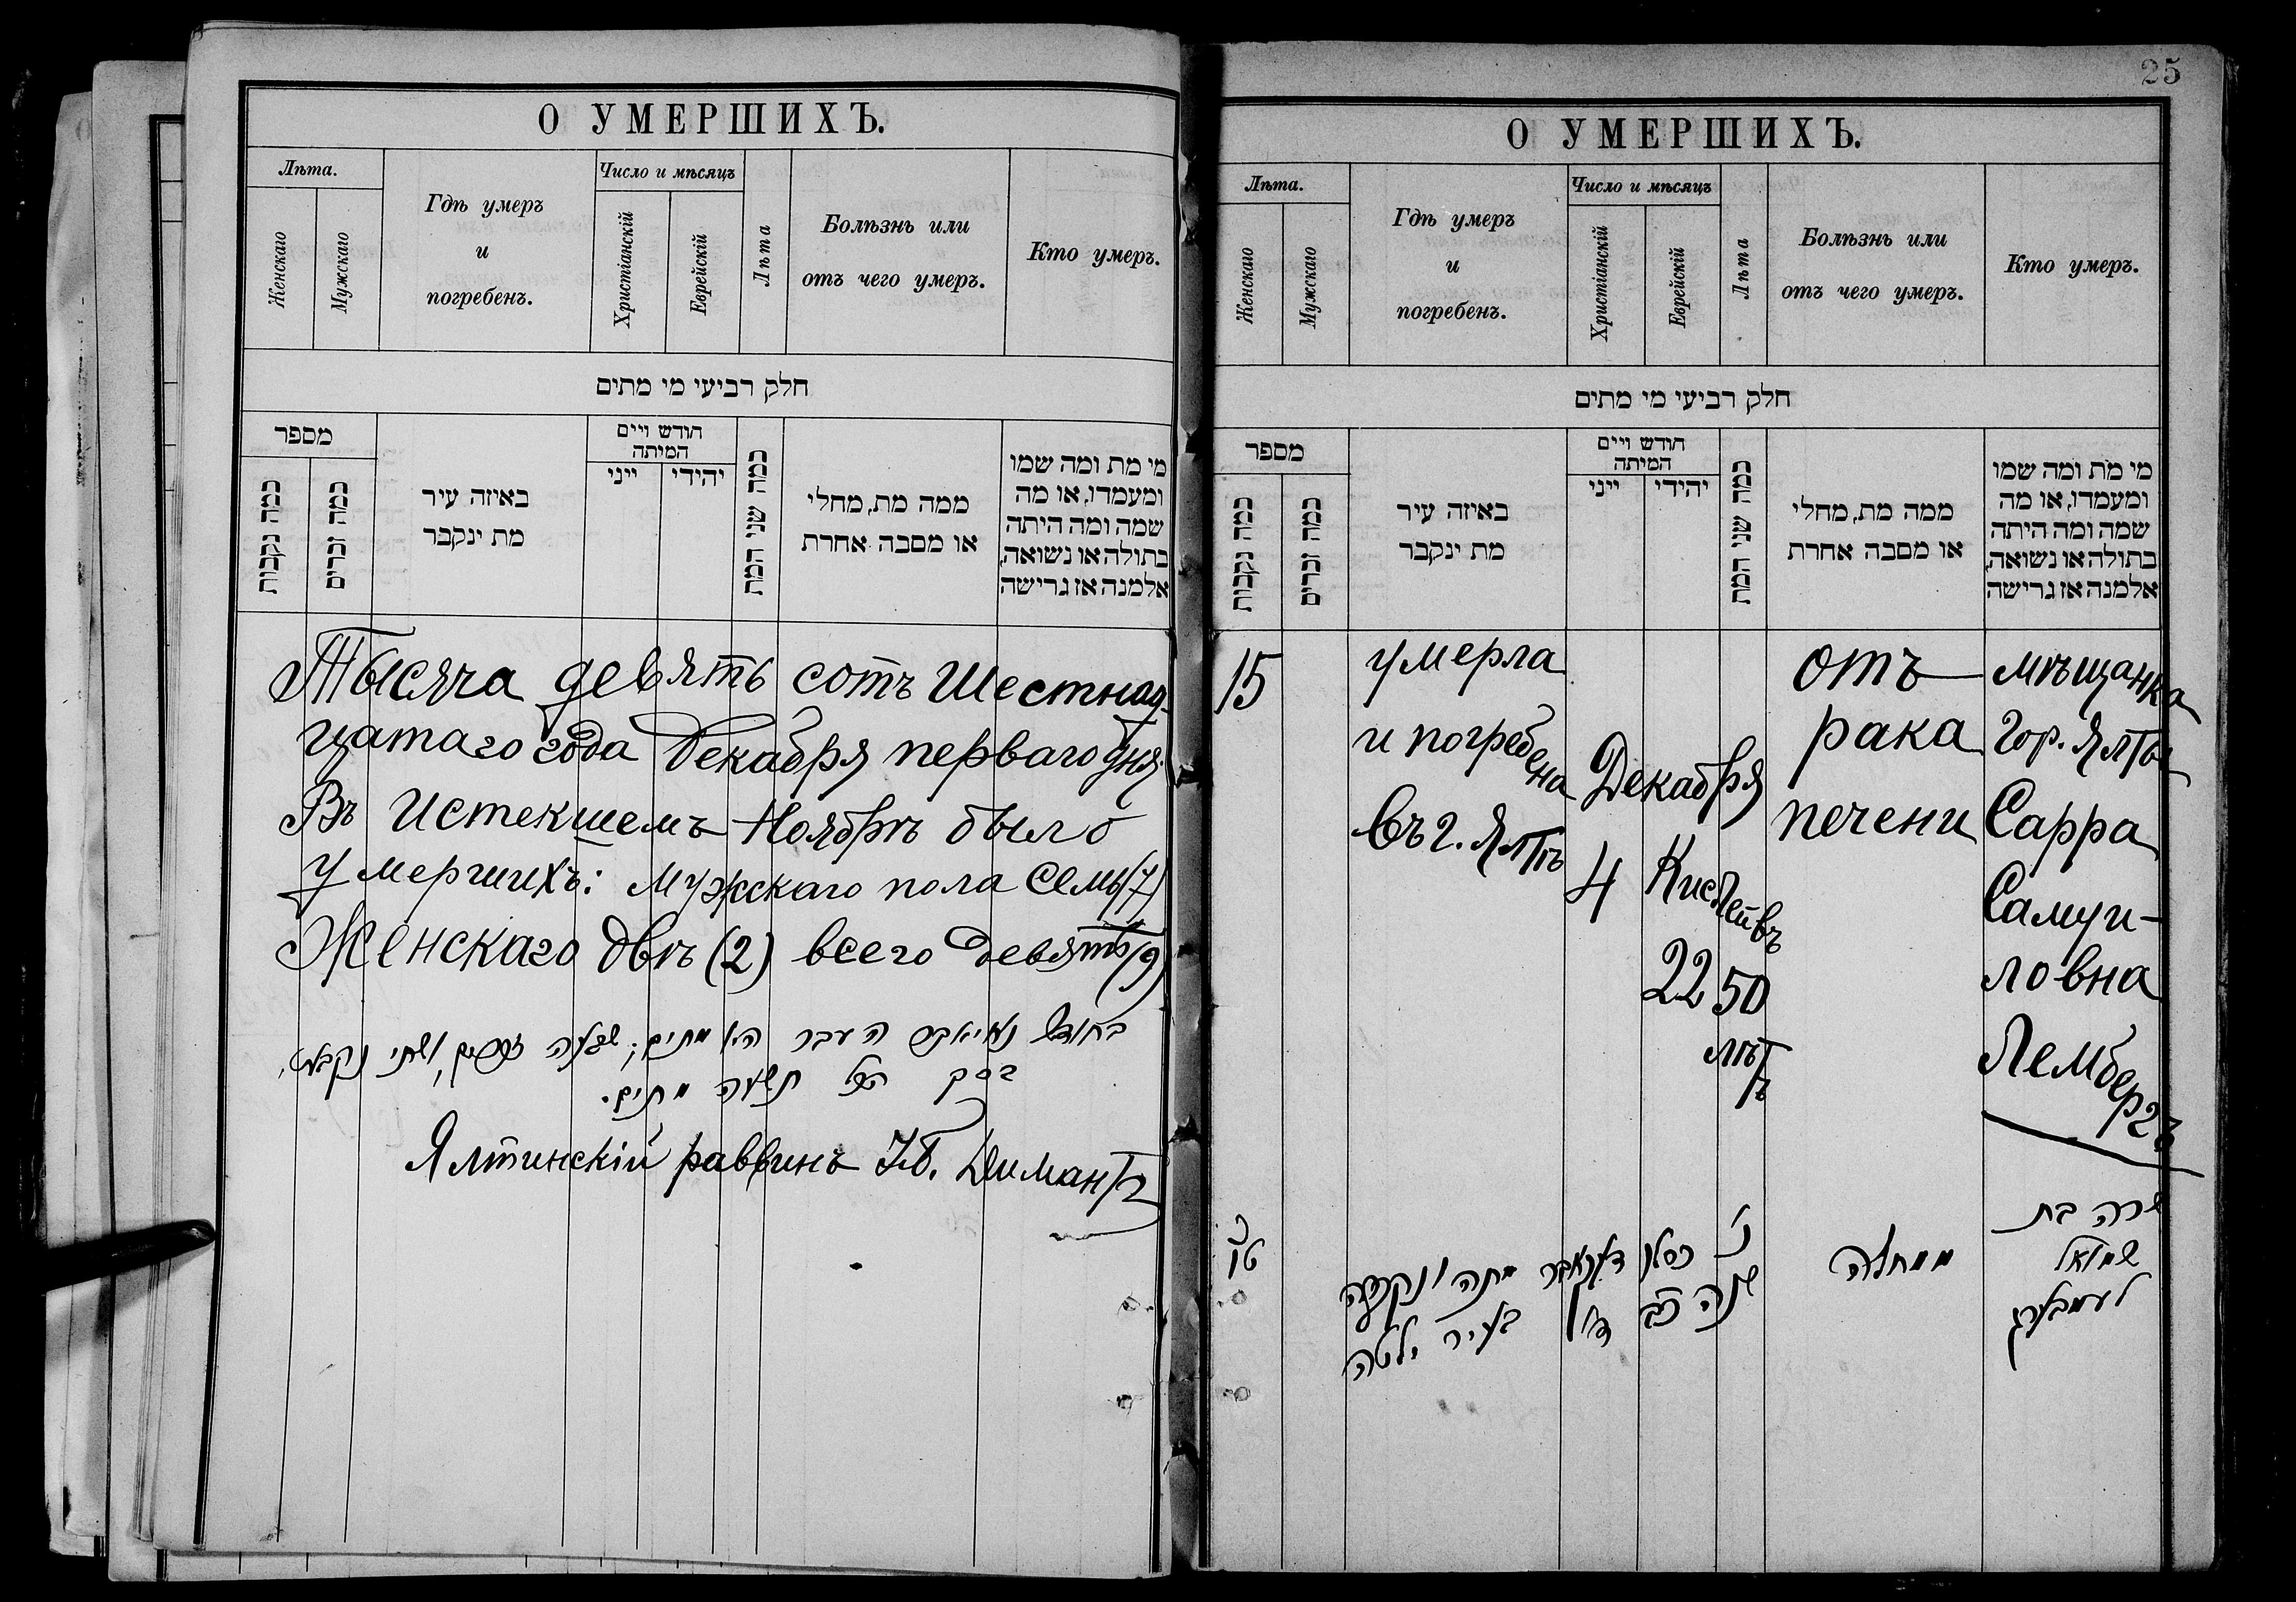 О УМЕРШИХЪ.
Лѣта.
Женскаго
Мужскаго
Гдѣ умеръ
и
погребенъ.
Число и мѣсяцъ
Христіанскій
Еврейскій
Лѣта
Болѣзнь или
отъ чего умеръ.
Кто умеръ.
חלק רביעי מי מתים
מספר
כמה נקבות
כמה זכרים
באיזה עיר
מת ינקבר
חודש ויים
המיתה
ייני
יהידי
כמה שני המת
ממה מת, מחלי
או מסבה אחרת
מי מת ומה שמו
ומעמדו, או מה
שמה ומה היתה
בתולה או נשואה,
אלמנה אז גרישה
Тысяча девять сотъ Шестнад-
цатаго года Декабря перваго дня.
Въ Истекшемъ Ноябрѣ было
умершихъ: Мужскаго пола Семь (7)
Женскаго двѣ (2) всего девять (9)
העבר מתים; ושתי
תשעה מתים.
Ялтинскій раввинъ Димантъ
25
О УМЕРШИХЪ.
Лѣта.
Женскаго
Мужскаго
Гдѣ умеръ
и
погребенъ.
Число и мѣсяцъ
Христіанскій
Еврейскій
Лѣта
Болѣзнь или
отъ чего умеръ.
Кто умеръ.
חלק רביעי מי מתים
מספר
כמה נקבות
כמה זכרים
באיזה עיר
מת ינקבר
חודש ויים
המיתה
ייני
יהידי
כמה שני המת
ממה מת, מחלי
או מסבה אחרת
מי מת ומה שמו
ומעמדו, או מה
שמה ומה היתה
בתולה או נשואה,
אלמנה אז גרישה
15
умерла
и погребена
въ г. Ялтѣ
Декабря
4
Кислевъ
22
50
лѣтъ
отъ
рака
печени
мѣщанка
гор. Ялты
Сарра
Самуи-
ловна
Лембергъ
נ'
טו
מתה ונקברה
בעיר ילטה
דעקאבר
ד'
כסלו
כב
נ'
שנה
ממחלה
שרה בת
שמואל
לעמבערג